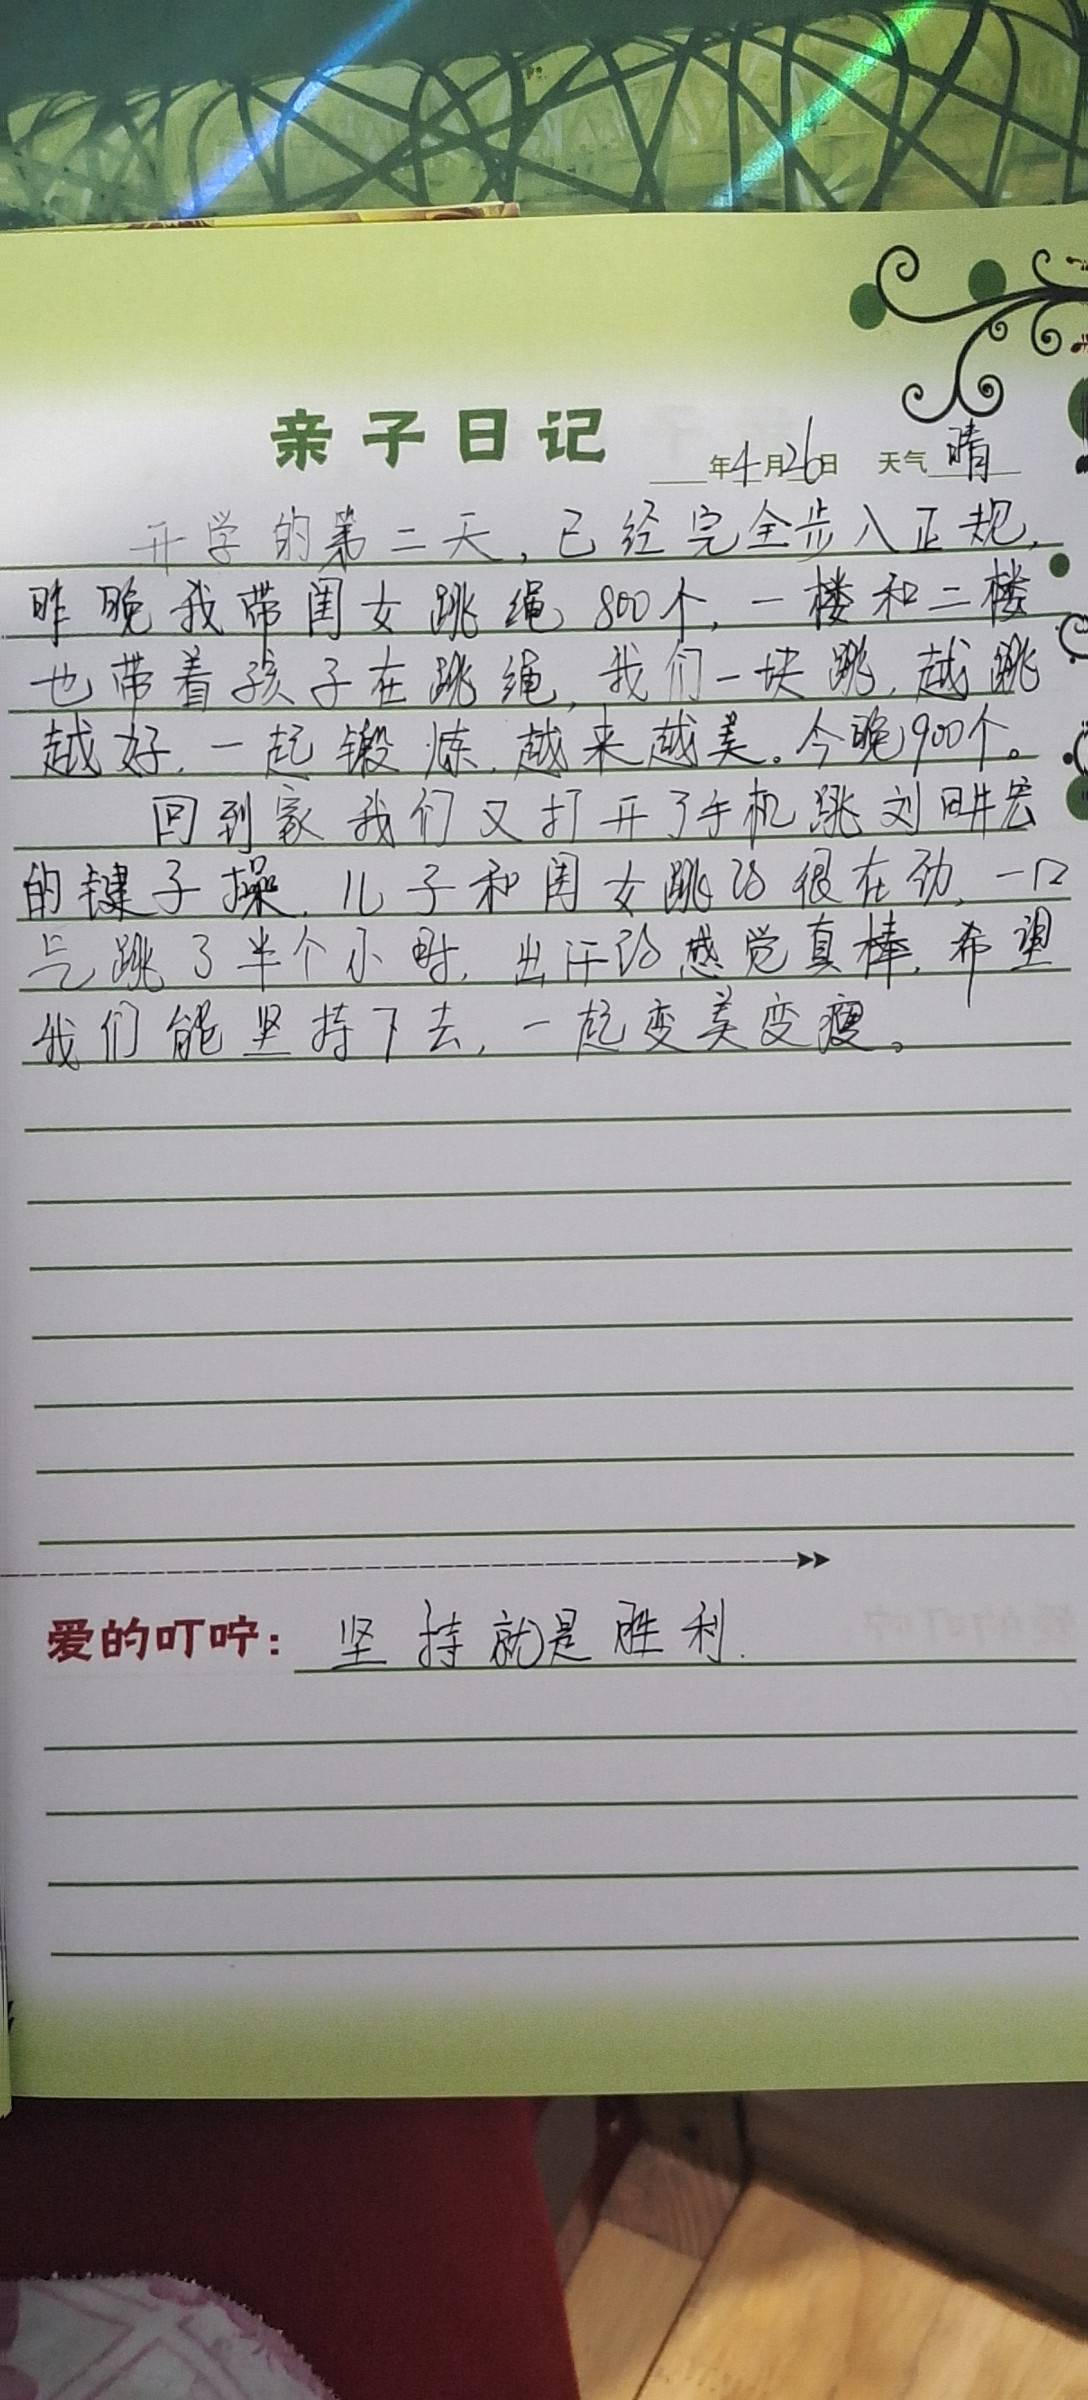 亲子日记
年4月26日 天气 晴
开学的第二天，已经完全步入正规，
昨晚我带闺女跳绳800个，一楼和二楼
也带着孩子在跳绳，我们一块跳，越跳
越好，一起锻炼，越来越美。今晚900个。
回到家我们又打开了手机跳刘畊宏
的键子操，儿子和闺女跳的很在劲，一口
气跳了半个小时，出汗的感觉真棒，希望
我们能坚持下去，一起变美变瘦。
爱的叮咛：坚持就是胜利.